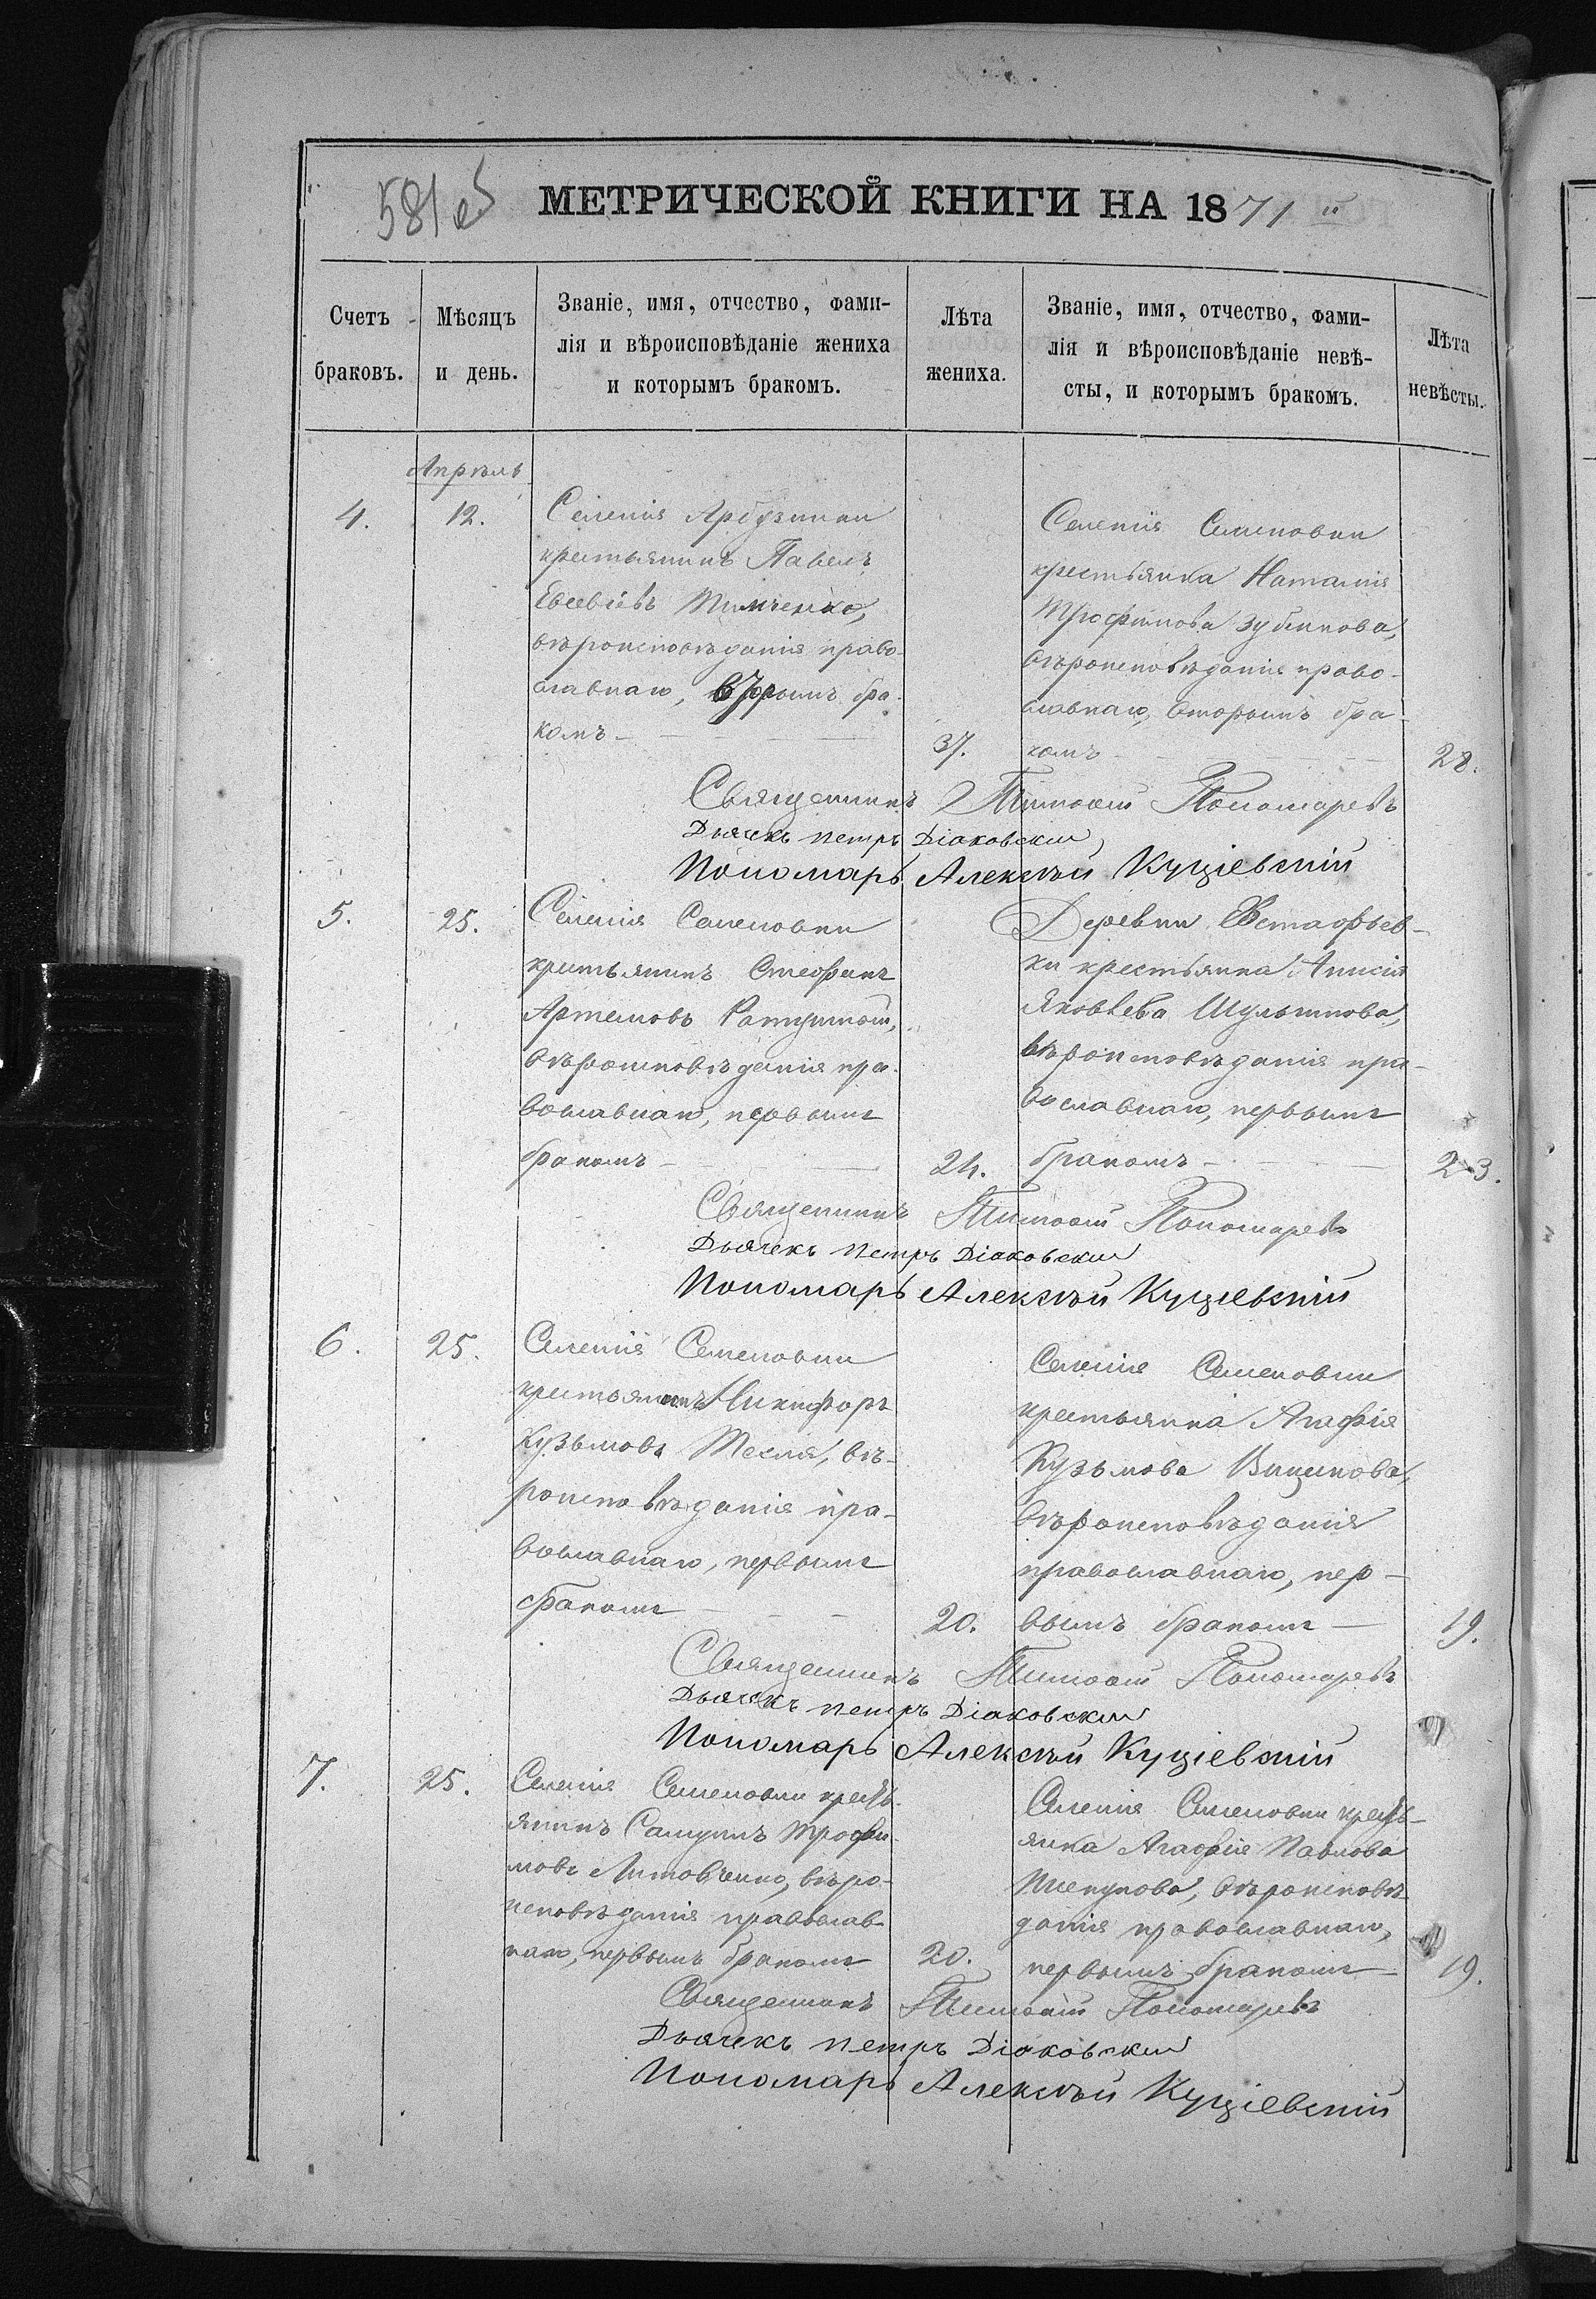 581 об
МЕТРИЧЕСКОЙ КНИГИ НА 1871 й
Счетъ браковъ.
Мѣсяцъ и день.
Званіе, имя, отчество, фами-
лія и вѣроисповѣданіе жениха
и которымъ бракомъ.
Лѣта жениха.
Званіе, имя, отчество, фами-
лія и вѣроисповѣданіе невѣ-
сты, и которымъ бракомъ.
Лѣта невѣсты.
Апрѣль
4.
12.
Селенія Арбузинки
крестьянинъ Павелъ
Евсевіевъ Тимченко,
вѣроисповѣданія право-
славнаго, вторымъ бра-
комъ —
37.
Селенія Семеновки
крестьянка Наталія
Трофимова Зубенкова,
вѣроисповѣданія право-
славнаго, вторымъ бра-
комъ —
28.
Священникъ Тимофей Пономаревъ
Дьячекъ Петръ Діаковскій
Пономарь Алексѣй Куціевскій
5.
25.
Селенія Семеновки
крестьянинъ Стефанъ
Артемовъ
вѣроисповѣданія пра-
вославнаго, первымъ
бракомъ —
24.
Деревни Евстафьев-
ки крестьянка Анисія
Яковлева
вѣроисповѣданія пра-
вославнаго, первымъ
бракомъ —
23.
Священникъ Тимофей Пономаревъ
Дьячекъ Петръ Діаковскій
Пономарь Алексѣй Куціевскій
6.
25.
Селенія Семеновки
крестьянинъ Никифоръ
Кузьмовъ Тесля, вѣ-
роисповѣданія пра-
вославнаго, первымъ
бракомъ —
20.
Селенія Семеновки
крестьянка Агафія
Кузьмова
вѣроисповѣданія
православнаго, пер-
вымъ бракомъ —
19.
Священникъ Тимофей Пономаревъ
Дьячекъ Петръ Діаковскій
Пономарь Алексѣй Куціевскій
7.
25.
Селенія Семеновки кресть-
янинъ Самуилъ Трофи-
мовъ Литовченко, вѣро-
исповѣданія православ-
наго, первымъ бракомъ
20.
Селенія Семеновки кресть-
янка Агафія Павлова
вѣроисповѣ-
данія православнаго,
первымъ бракомъ —
19.
Священникъ Тимофей Пономаревъ
Дьячекъ Петръ Діаковскій
Пономарь Алексѣй Куціевскій